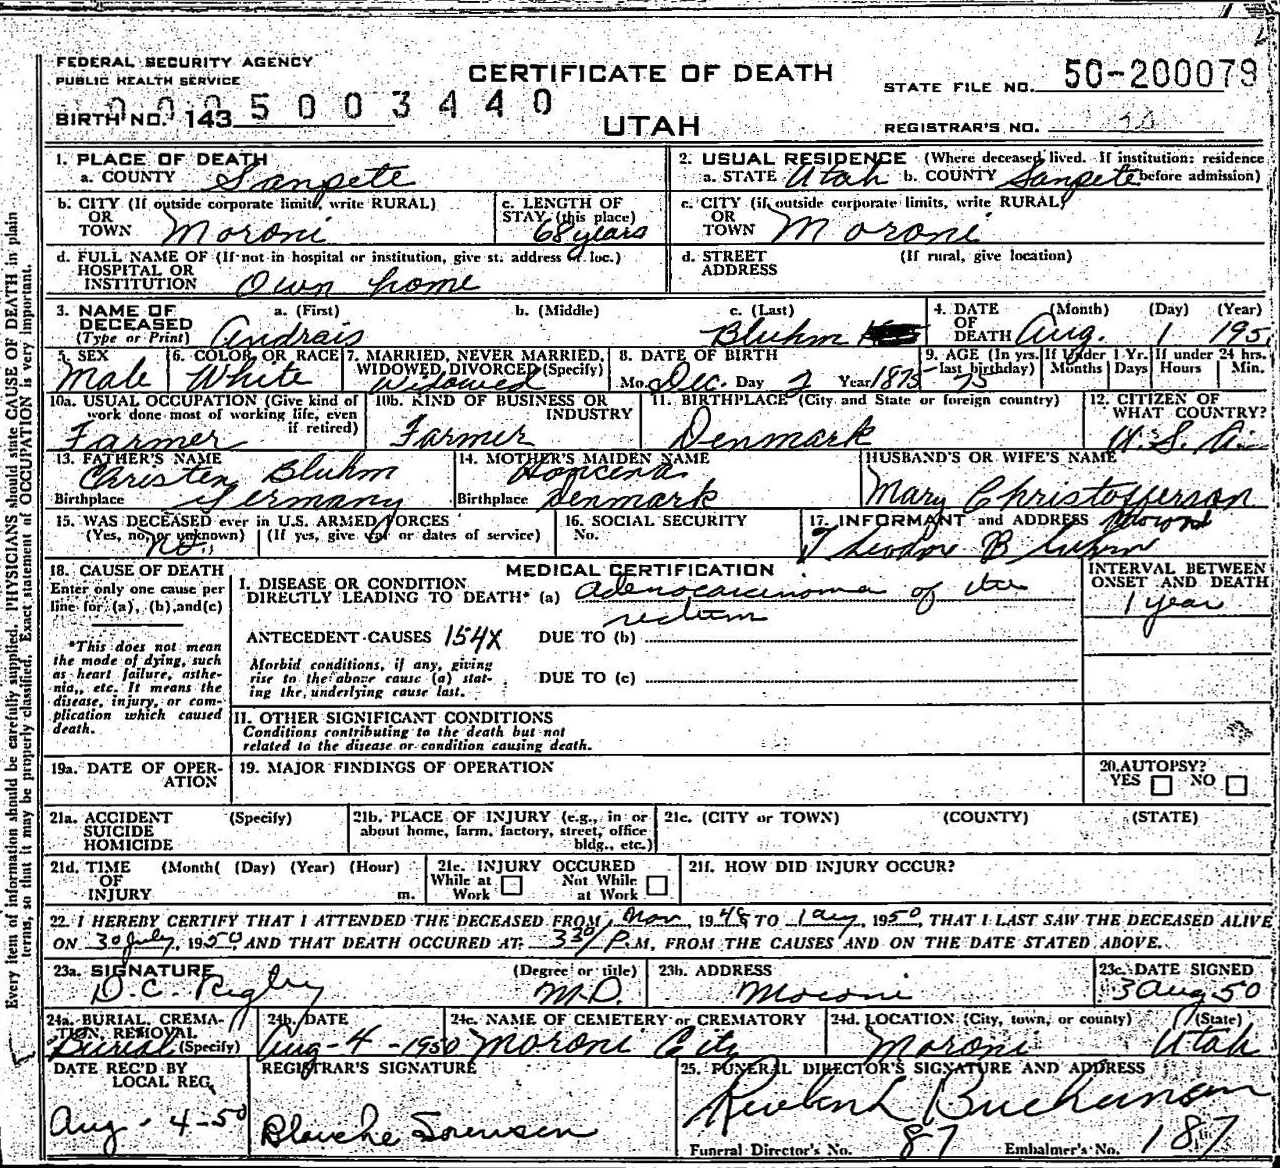 FEDERAL SECURITY AGENCY
PUBLIC HEALTH SERVICE
CERTIFICATE OF DEATH
UTAH
STATE FILE NO. 50-200079
BIRTH NO. 143 0005003440
REGISTRAR'S NO.
1. PLACE OF DEATH
a. COUNTY Sanpete
2. USUAL RESIDENCE (Where deceased lived. If institution: residence before admission)
a. STATE Utah b. COUNTY Sanpete
b. CITY (If outside corporate limits, write RURAL) OR TOWN Moroni
c. LENGTH OF STAY (this place) 68 years
c. CITY (if outside corporate limits, write RURAL) OR TOWN Moroni
d. FULL NAME OF (If not in hospital or institution, give st. address or loc.) HOSPITAL OR INSTITUTION Own home
d. STREET ADDRESS (If rural, give location)
3. NAME OF DECEASED (Type or Print) a. (First) Andrais b. (Middle) c. (Last) Bluhm
4. DATE OF DEATH (Month) (Day) (Year) Aug. 1 195
5. SEX Male
6. COLOR OR RACE White
7. MARRIED, NEVER MARRIED, WIDOWED, DIVORCED (Specify) Widowed
8. DATE OF BIRTH Mo. Dec. Day 2 Year 1875
9. AGE (In yrs. last birthday) 75 If Under 1 Yr. Months Days If under 24 hrs. Hours Min.
10a. USUAL OCCUPATION (Give kind of work done most of working life, even if retired) Farmer
10b. KIND OF BUSINESS OR INDUSTRY Farmer
11. BIRTHPLACE (City and State or foreign country) Denmark
12. CITIZEN OF WHAT COUNTRY? U.S.A.
13. FATHER'S NAME Christen Bluhm
Birthplace Germany
14. MOTHER'S MAIDEN NAME
Birthplace Denmark
HUSBAND'S OR WIFE'S NAME Mary Christofferson
15. WAS DECEASED ever in U.S. ARMED FORCES (Yes, no, or unknown) (If yes, give war or dates of service) No
16. SOCIAL SECURITY No.
17. INFORMANT and ADDRESS Moroni
Theodore Bluhm
18. CAUSE OF DEATH
Enter only one cause per line for (a), (b), and (c)
*This does not mean the mode of dying, such as heart failure, asthenia, etc. It means the disease, injury, or complication which caused death.
MEDICAL CERTIFICATION
I. DISEASE OR CONDITION DIRECTLY LEADING TO DEATH* (a) adenocarcinoma of the rectum
INTERVAL BETWEEN ONSET AND DEATH 1 year
ANTECEDENT CAUSES 154X DUE TO (b)
Morbid conditions, if any, giving rise to the above cause (a) stating the underlying cause last. DUE TO (c)
II. OTHER SIGNIFICANT CONDITIONS
Conditions contributing to the death but not related to the disease or condition causing death.
19a. DATE OF OPERATION
19. MAJOR FINDINGS OF OPERATION
20. AUTOPSY? YES NO
21a. ACCIDENT SUICIDE HOMICIDE (Specify)
21b. PLACE OF INJURY (e.g., in or about home, farm, factory, street, office bldg., etc.)
21c. (CITY or TOWN) (COUNTY) (STATE)
21d. TIME OF INJURY (Month( (Day) (Year) (Hour) m.
21e. INJURY OCCURED While at Work Not While at Work
21f. HOW DID INJURY OCCUR?
22. I HEREBY CERTIFY THAT I ATTENDED THE DECEASED FROM Nov, 1948 TO 1 Aug, 1950, THAT I LAST SAW THE DECEASED ALIVE
ON 30 July, 1950 AND THAT DEATH OCCURED AT 330/P.M, FROM THE CAUSES AND ON THE DATE STATED ABOVE.
23a. SIGNATURE D.C. Rigby (Degree or title) M.D.
23b. ADDRESS Moroni
23c. DATE SIGNED 3 Aug 50
24a. BURIAL, CREMATION, REMOVAL (Specify) Burial
24b. DATE Aug-4-1950
24c. NAME OF CEMETERY or CREMATORY Moroni City
24d. LOCATION (City, town, or county) (State) Moroni Utah
DATE REC'D BY LOCAL REG. Aug-4-50
REGISTRAR'S SIGNATURE Blanche Sorensen
25. FUNERAL DIRECTOR'S SIGNATURE AND ADDRESS Buchanan
Funeral Director's No. 87 Embalmer's No. 187
Every item of information should be carefully supplied. PHYSICIANS should state CAUSE OF DEATH in plain terms, so that it may be properly classified. Exact statement of OCCUPATION is very important.